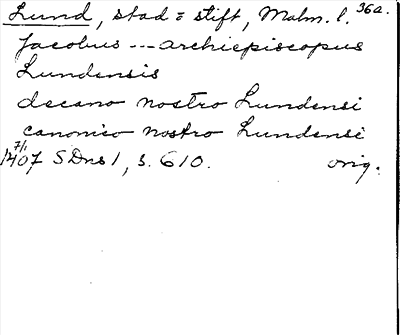 Lund, stad o stift, Malm. l. 36a.
Jacobus --- archiepiscopus
Lundensis
decano nostro Lundensi
canonico nostro Lundensi
7/1 1407 SDns 1, s. 610. orig.